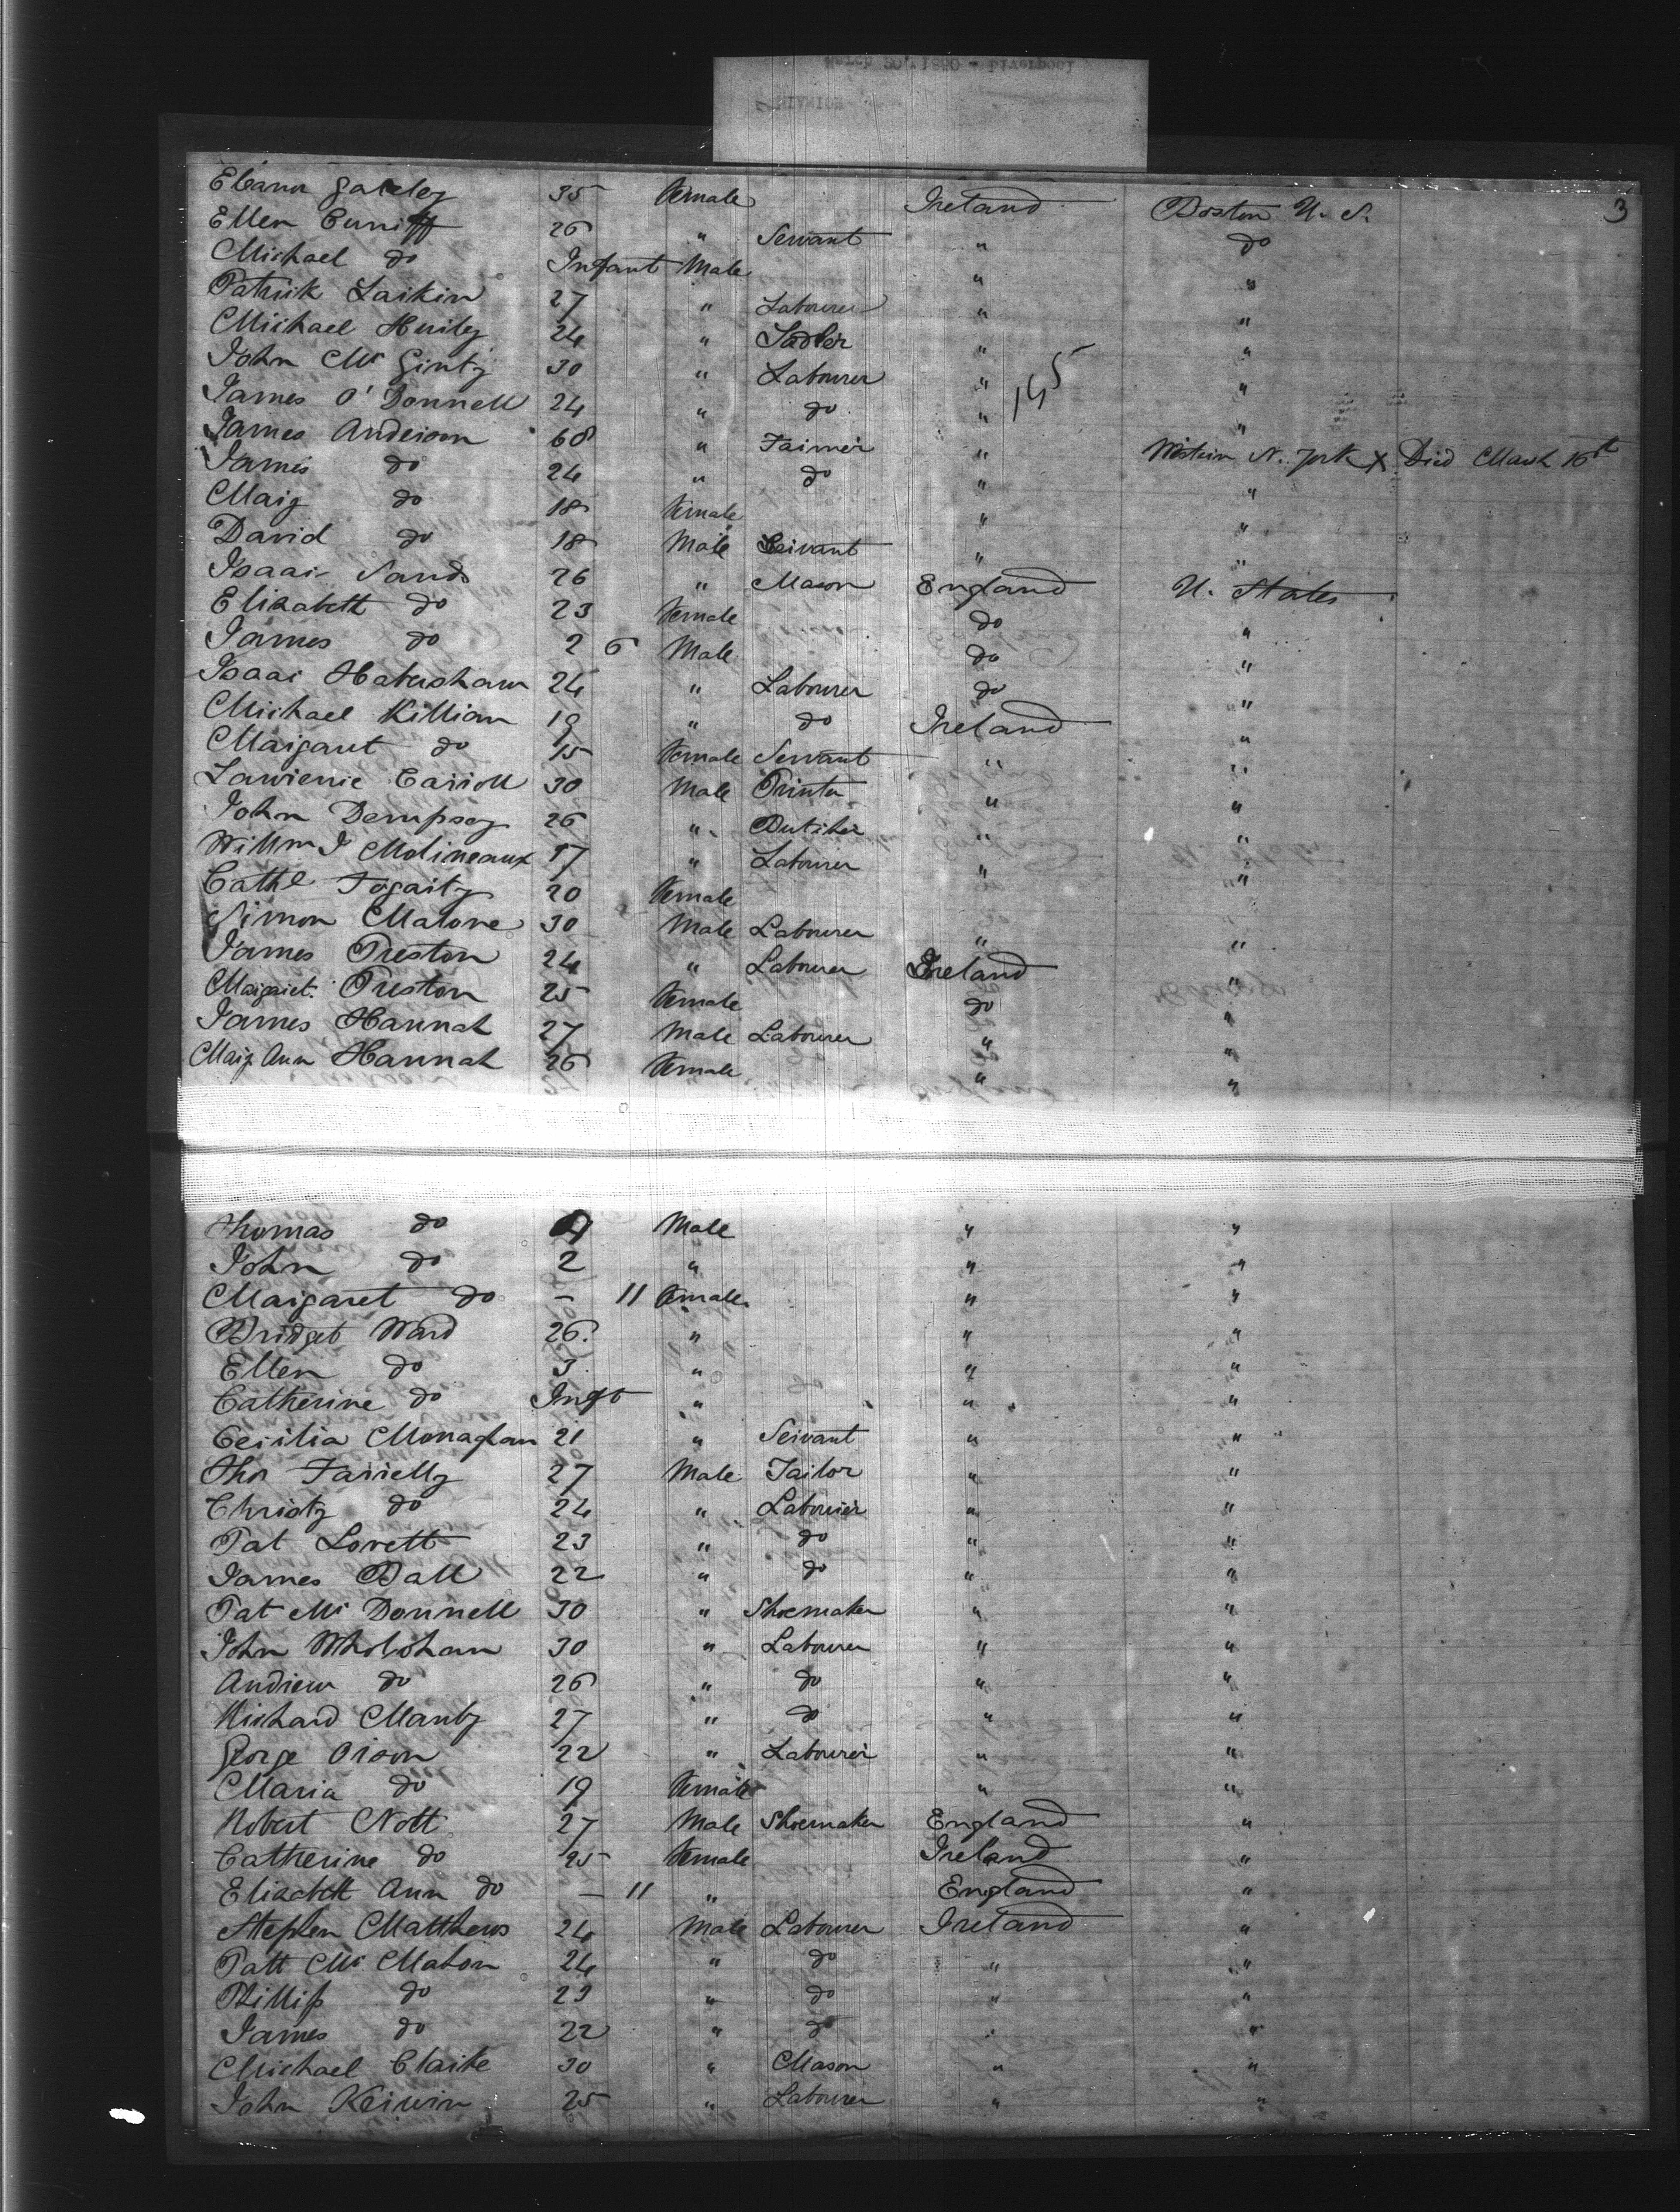 3
Eleanor Gateley 35 Female Ireland Boston U. S.
Ellen Cuniff 26 " Servant " do
Michael do Infant Male " "
Patrick Larkin 27 " Labourer " "
Michael Hurley 24 " Sadler " "
John Mc Ginty 30 " Labourer " "
James O'Donnell 24 " do " "
145
James Anderson 60 " Farmer " Western N. York X Died March 16th
James do 24 " do " "
Marg do 18 Female " "
David do 18 Male Servant " "
Isaac Sands 26 " Mason England U. States
Elizabeth do 23 Female do "
James do 2 6 Male do "
Isaac Habersham 24 " Labourer do "
Michael Killian 19 " do Ireland "
Margaret do 15 Female Servant " "
Lawrence Carroll 30 Male Printer " "
John Dempsey 26 " Butcher " "
Willm J Molineaux 17 " Labourer " "
Cathe Fogarty 20 Female
Simon Malone 30 Male Labourer " "
James Preston 24 " Labourer Ireland "
Margaret Preston 25 Female do "
James Hannah 27 Male Labourer " "
Marg Ann Hannah 26 Female " "
Thomas do 4 Male " "
John do 2 " " "
Margaret do – 11 Female " "
Bridget Ward 26 " " "
Ellen do 3 " " "
Catherine do Inft " " "
Cecilia Monaghan 21 " Servant " "
Thos Farrelly 27 Male Tailor " "
Christy do 24 " Labourer " "
Pat Lovett 23 " do " "
James Ball 22 " do " "
Pat Mc Donnell 30 " Shoemaker " "
John Wholohan 30 " Labourer " "
Andrew do 26 " do " "
Richard Manly 27 " do " "
George Orson 22 " Labourer " "
Maria do 19 Female " "
Robert Nott 27 Male Shoemaker England "
Catherine do 25 Female Ireland "
Elizabeth Ann do – 11 " England "
Stephen Matthews 24 Male Labourer Ireland "
Patt Mc Mahon 24 " do " "
Phillip do 23 " do " "
James do 22 " do " "
Michael Clarke 30 " Mason " "
John Kerwin 25 " Labourer " "